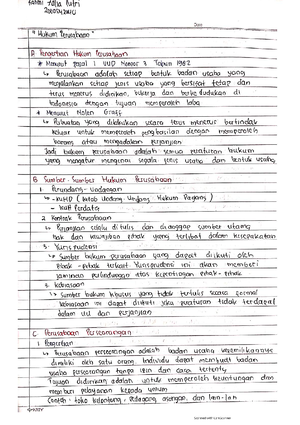 Putri
Date
"Hukum Perusahaan"
A. Pengertian Hukum Perusahaan
* Menurut pasal 1 UUD Nomor 3 Tahun 1982
↳ Perusahaan adalah setiap bentuk badan usaha yang
menjalankan setiap jenis usaha yang bersifat tetap dan
terus menerus didirikan, bekerja dan berkedudukan di
Indonesia dengan tujuan memperoleh laba
* Menurut Molen Graff
↳ Perbuatan yang dilakukan secara terus menerus bertindak
keluar untuk memperoleh penghasilan dengan memperoleh
barang atau mengadakan perjanjian
Jadi hukum perusahaan adalah semua peraturan hukum
yang mengatur mengenai segala jenis usaha dan bentuk usaha
B. Sumber-Sumber Hukum Perusahaan
1. Perundang-Undangan
- KUHD (kitab Undang Undang Hukum Dagang)
- KUH Perdata
2. Kontrak Perusahaan
↳ Perjanjian selalu ditulis dan dianggap sumber utama
hak dan kewajiban pihak yang terlibat dalam kesepakatan
3. Yurisprudensi
↳ Sumber hukum perusahaan yang dapat diikuti oleh
pihak-pihak terkait. Yurisprudensi ini akan memberi
jaminan perlindungan atas kepentingan pihak-pihak
3. kebiasaan
↳ Sumber hukum khusus yang tidak tertulis secara formal
kebiasaan ini dapat diikuti jika peraturan tidak terdapat
dalam UU dan perjanjian
C. Perusahaan Perseorangan
1. Pengertian
↳ Perusahaan perseorangan adalah badan usaha
dimiliki oleh satu orang. Individu dapat membuat badan
usaha perseorangan tanpa izin dan cara tertentu
Tujuan didirikan adalah untuk memperoleh keuntungan dan
memberi pelayanan kepada umum
Contoh = toko kelontong, Pedagang asongan, dan lain-lain